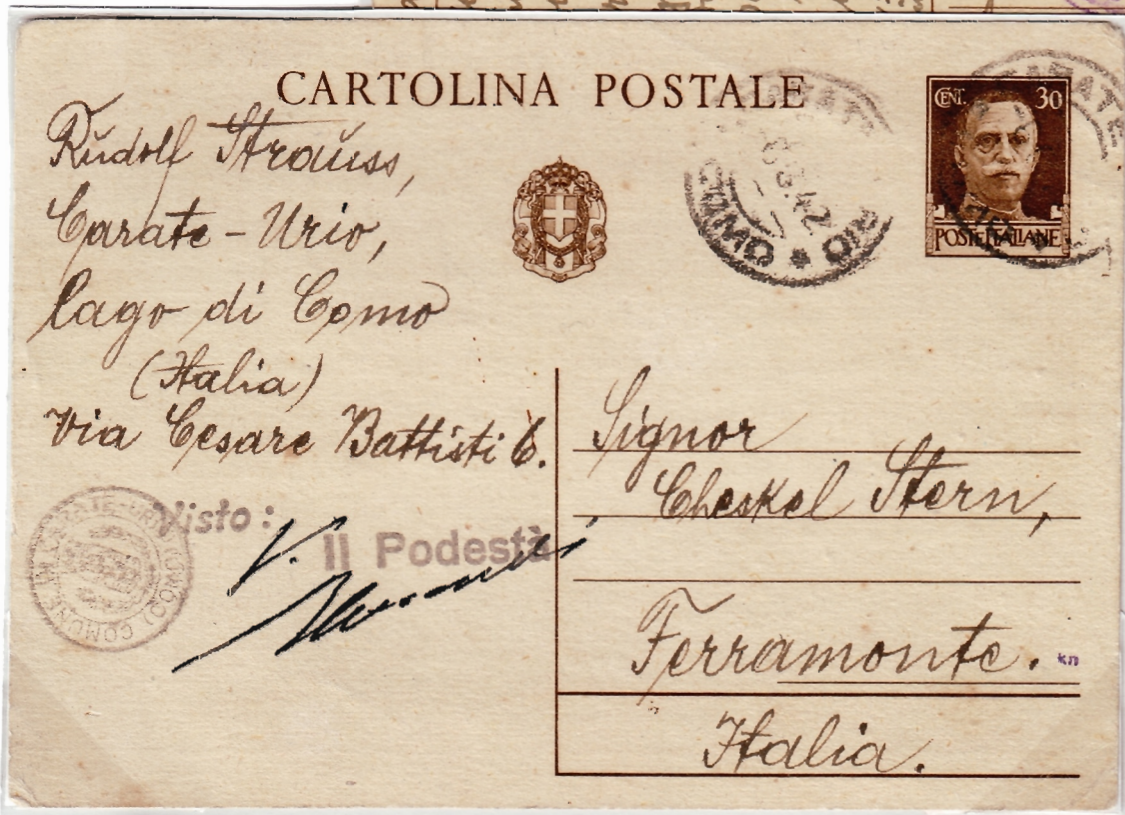 CARTOLINA POSTALE
CENT. 30
POSTE ITALIANE
Rudolf Strauss,
Carate - Urio,
Lago di Como
(Italia)
Via Cesare Battisti 6.
COMO
Visto:
Il Podestà
V.
Signor
Cheskel Stern,
Ferramonte.
kn
Italia.